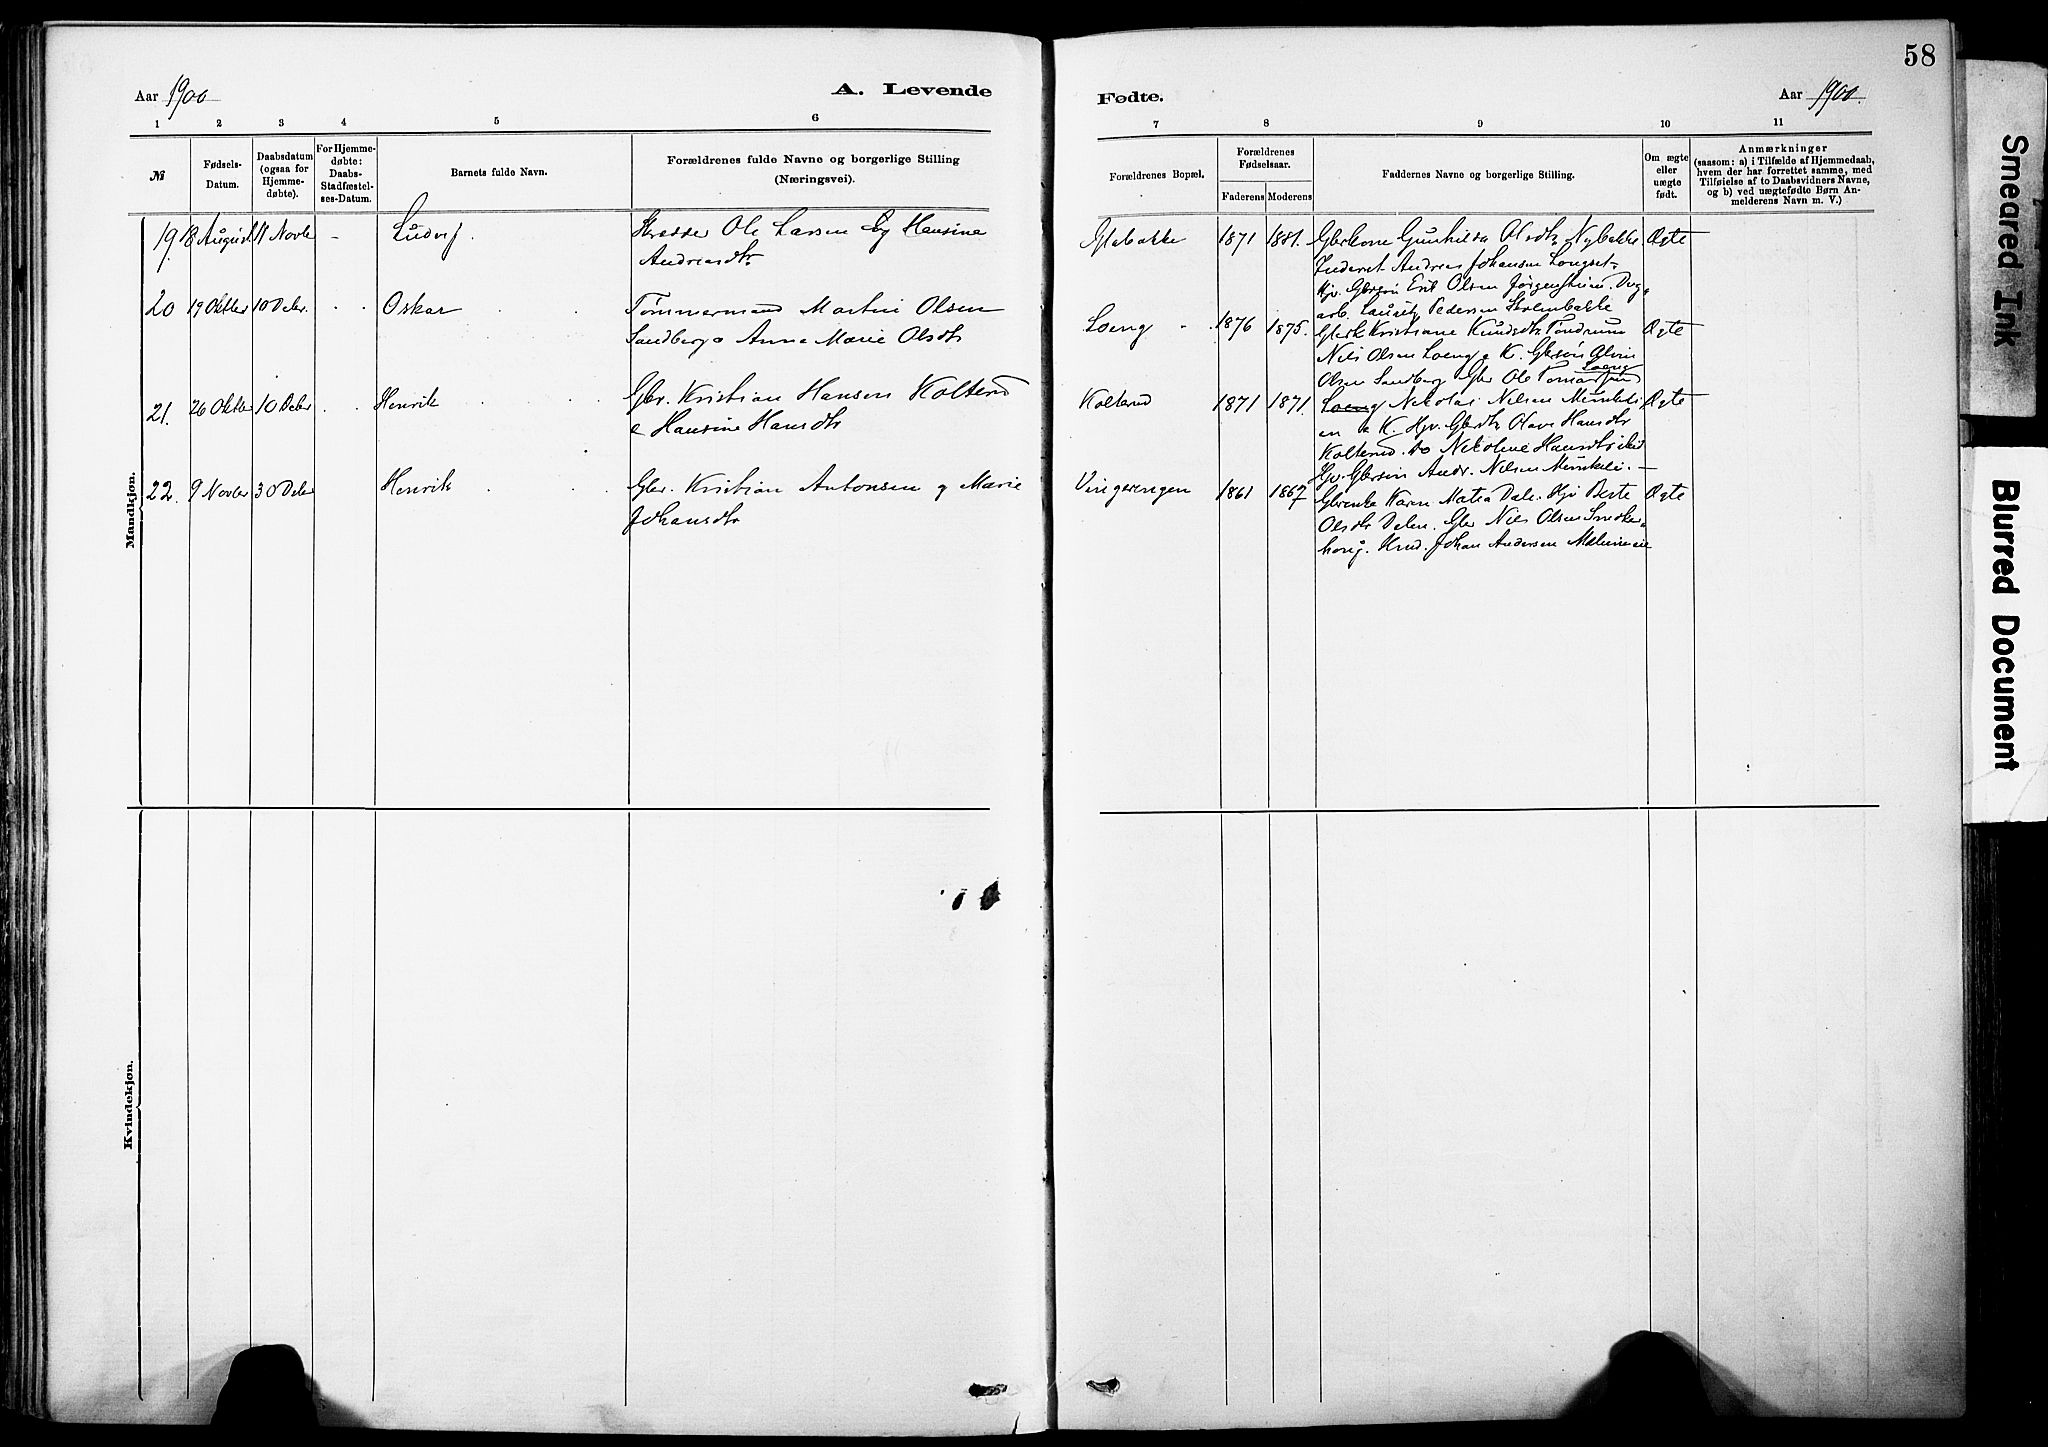 58
Aar 1900
A. Levende
Fødte.
Aar 1900.
1 2 3 4 5 6
7 8 9 10 11
№
Fødsels-
Datum.
Daabsdatum
(ogsaa for
Hjemme-
døbte).
For Hjemme-
døbte:
Daabs-
Stadfæstel-
ses-Datum.
Barnets fulde Navn.
Forældrenes fulde Navne og borgerlige Stilling
(Næringsvei).
Forældrenes Bopæl.
Forældrenes
Fødselsaar.
Faderens Moderens
Faddernes Navne og borgerlige Stilling.
Om ægte
eller
uægte
født.
Anmærkninger
(saasom: a) i Tilfælde af Hjemmedaab,
hvem der har forrettet samme, med
Tilføielse af to Daabsvidners Navne,
og b) ved uægtefødte Børn An-
melderens Navn m. V.)
Mandkjøn.
19. 18 August 11 Novbr - Ludvig Ole Larsen og Hansine
Andreasdtr
1871 1881. Gunhilda Olsdtr Nybakke
Andreas Johansen Longset
Erik Olsen Jørgenstuen. Dag-
arb. Lauritz Pedersen
Ægte
20 19 Oktbr 10 Debr. Oskar Tømmermand Martin Olsen
Sandberg o Anne Marie Olsdtr
Loeng 1876 1875. Kristiane Knudsdtr Tøndrum
Nils Olsen Loeng o K. Gbrsøn Alvin
Olsen Sandberg Gbr Ole
Loeng
Ægte
21. 26 Oktbr 10 Debr Henrik Gbr. Kristian Hansen Kolterud
o Hansine Hansdtr
Kolterud 1871 1871. Nikolai Nielsen
K. Hjv. Gbrdtr Olave Hansdtr
Kolterud. do Nikoline Hansdtr
Hjv. Gbrsøn Andr. Nilsen
Ægte
22. 9 Novbr 30 Debr Henrik Gbr. Kristian Antonsen o Marie
Johansdtr
Vingerengen 1861 1867 Gbrenke Karen Matea Dale. Hjv Berte
Olsdtr Dalen. Gbr Nils Olsen
Johan Andersen
Ægte
Kvindekjøn.
Smeared Ink
Blurred Document